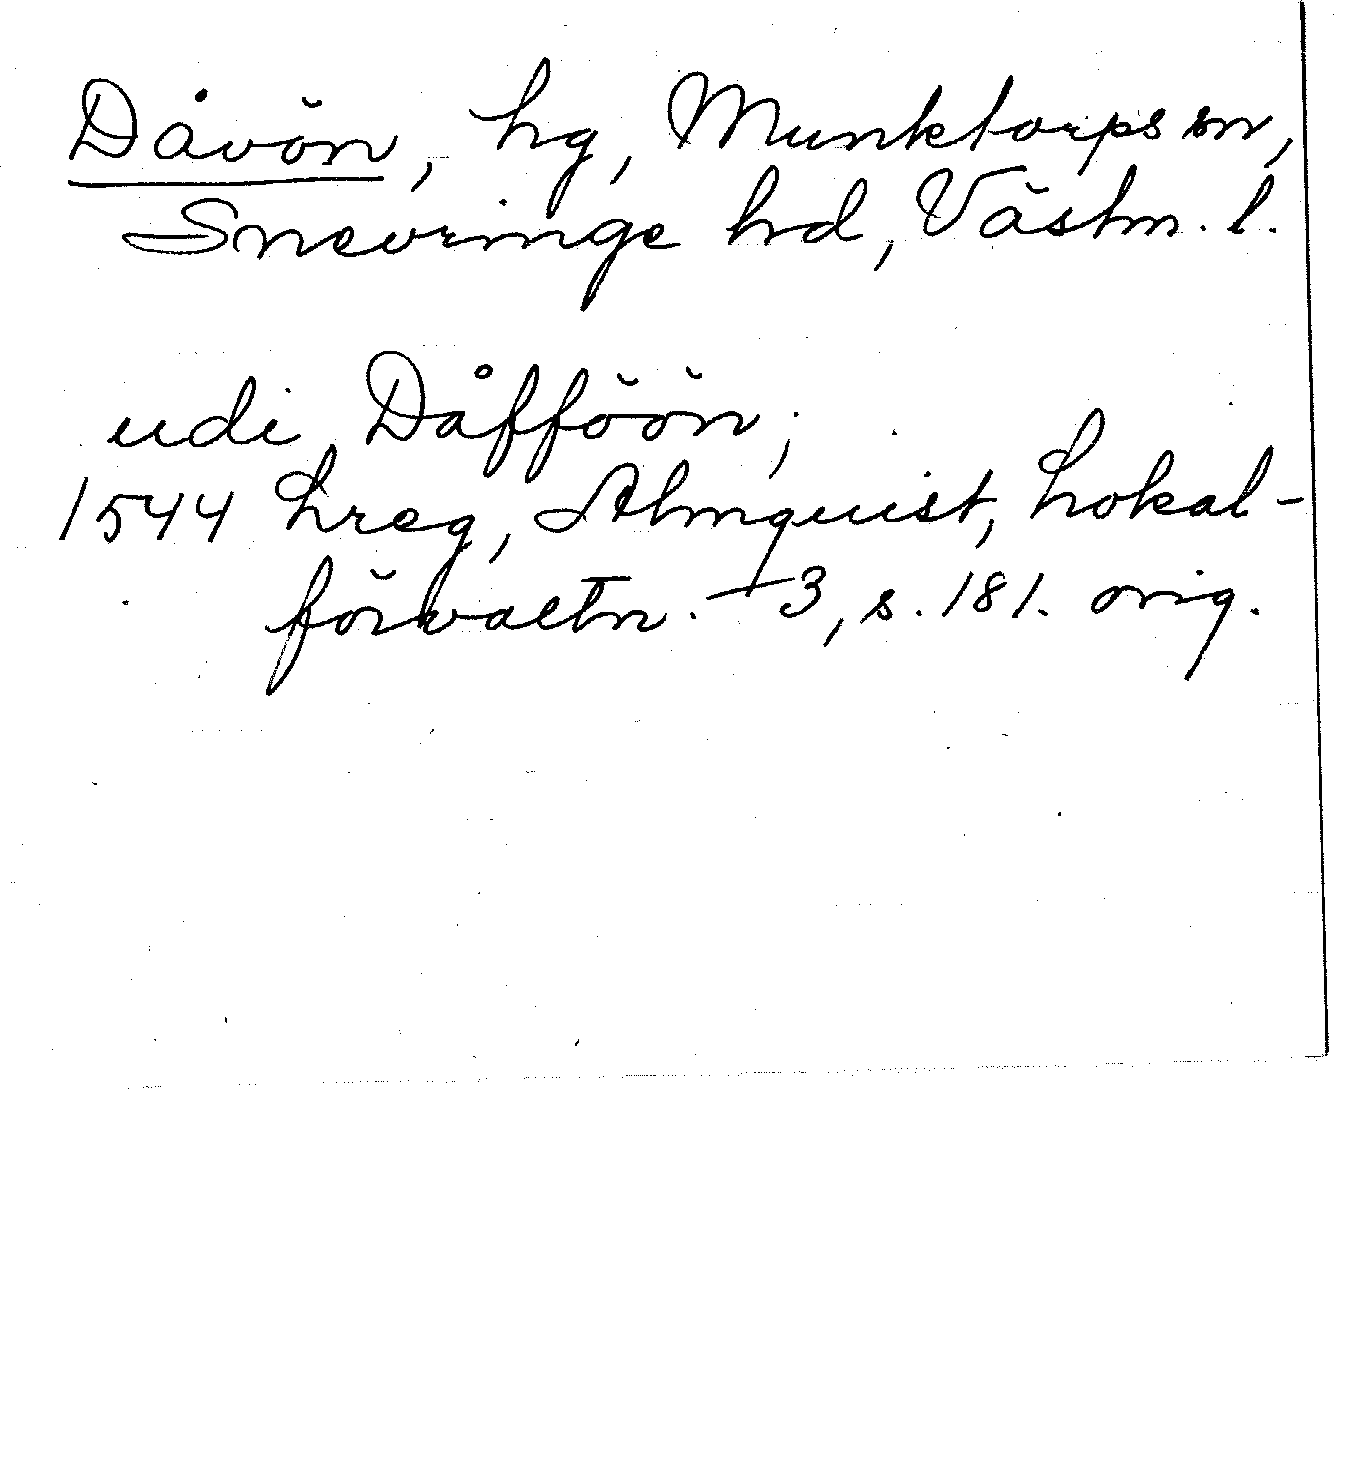 Dåvön, hg, Munktorps sn,
Snevringe hd, Västm. l.
udi Dåfföön;
1544 Lreg, Almquist, Lokal-
förvaltn. 3, s. 181. orig.